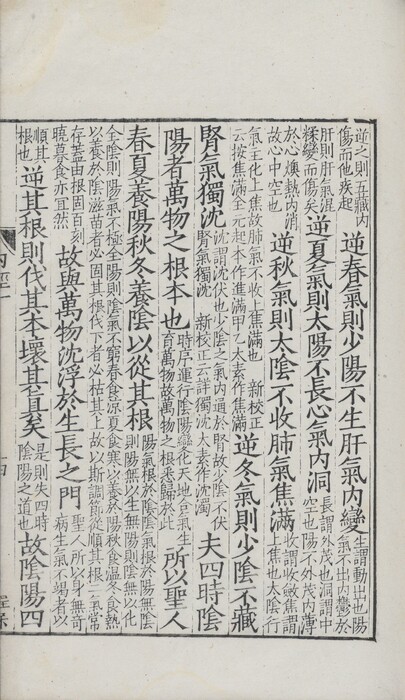 逆之則五藏内
傷而他疾起
逆春氣則少陽不生肝氣内變
生謂動出也陽
氣不出内鬱於
肝則肝氣混
糅變而傷矣
逆夏氣則太陽不長心氣内洞
長謂外茂也洞謂中
空也陽不外茂内薄
於心燠熱内消
故心中空也
逆秋氣則太陰不收肺氣焦滿
收謂收斂焦謂
上焦也太陰行
氣主化上焦故肺氣不收上焦滿也 新校正
云按焦滿全元起本作進滿甲乙太素作焦滿
逆冬氣則少陰不藏
腎氣獨沈
沈謂沈伏也少陰之氣内通於腎故少陰不伏
腎氣獨沈 新校正云詳獨沈太素作沈濁
夫四時陰
陽者萬物之根本也
時序運行陰陽變化天地合氣生
育萬物故萬物之根悉歸於此
所以聖人
春夏養陽秋冬養陰以從其根
陽氣根於陰陰氣根於陽無陰
則陽無以生無陽則陰無以化
全陰則陽氣不極全陽則陰氣不窮春食涼夏食寒以養於陽秋食温冬食熱
以養於陰滋苗者必固其根伐下者必枯其上故以斯調節從順其根二氣常
存蓋由根固百刻
曉暮食亦宜然
故與萬物沈浮於生長之門
聖人所以身無奇
病生氣不竭者以
順其
根也
逆其根則伐其本壞其真矣
是則失四時
陰陽之道也
故陰陽四